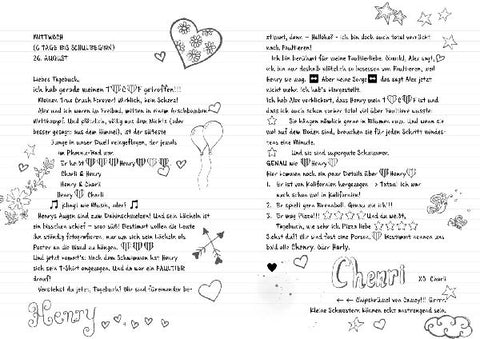 MITTWOCH
(6 TAGE BIS SCHULBEGINN)
26. AUGUST
Liebes Tagebuch,
ich hab gerade meinen T♥C♥F getroffen!!!
Kleinen Trau (crush Forever) Wirklich, kein Scherz!
Alex und ich waren im Freibad, mitten in einem Arschbomben-
Wettkampf. Und plötzlich, völlig aus dem Nichts (oder
besser gesagt: aus dem Himmel), ist der süßeste
Junge in unser Duell reingeflogen, der jemals
im Pommes-
Er heißt Henry
Charli & Henry
Henry & Charli
Henry Charli
klingt wie Musik, oder?
Henrys Augen sind zum Dahinschmelzen! Und sein Lächeln ist
ein bisschen schief – soo süß! Bestimmt wollen die Leute
ihn ständig fotografieren, nur um sich sein Lächeln als
Poster an die Wand zu hängen.
Und jetzt kommt's: Nach dem Schwimmen hat Henry
sich sein T-Shirt angezogen, und da war ein FAULTIER
drauf!
Verstehst du jetzt, Tagebuch! Wir sind füreinander be-
Henry
stimmt, denn – Hallöho! – ich bin doch auch total verrückt
nach Faultieren!
Ich bin berühmt für meine Faultierliebe. (Quack, Alex sagt,
ich bin nur deshalb plötzlich so besessen von Faultieren, weil
Henry sie mag. Aber neue Sorge: das sagt Alex jetzt
nicht mehr. Ich hab's klargestellt.
Ich hab Alex verklickert, dass Henry mein T♥C♥F ist und
dass ich auch schon vorher total viel über Faultiere wusste:
Sie hängen nämlich gerne in Bäumen rum. Und wenn sie
mal auf dem Boden sind, brauchen sie für jeden Schritt mindes-
tens eine Minute.
Und sie sind supergute Schwimmer.
GENAU wie Henry
Hier kommen noch ein paar Details über Henry
1. Er ist von Kalifornien hergezogen. → Tatsa! Ich war
noch schon mal in Kalifornien!
2. Er spielt gern Basketball. Genau wie ich!!
3. Er mag Pizza!!! Und du weißt,
Tagebuch, wie sehr ich Pizza liebe
Siehst du?! Wir sind fast eine Person. Bestimmt nennen uns
bald alle Chenry. Oder Harly.
Chenri
XO Charli
Kleine Schwestern können echt anstrengend sein.